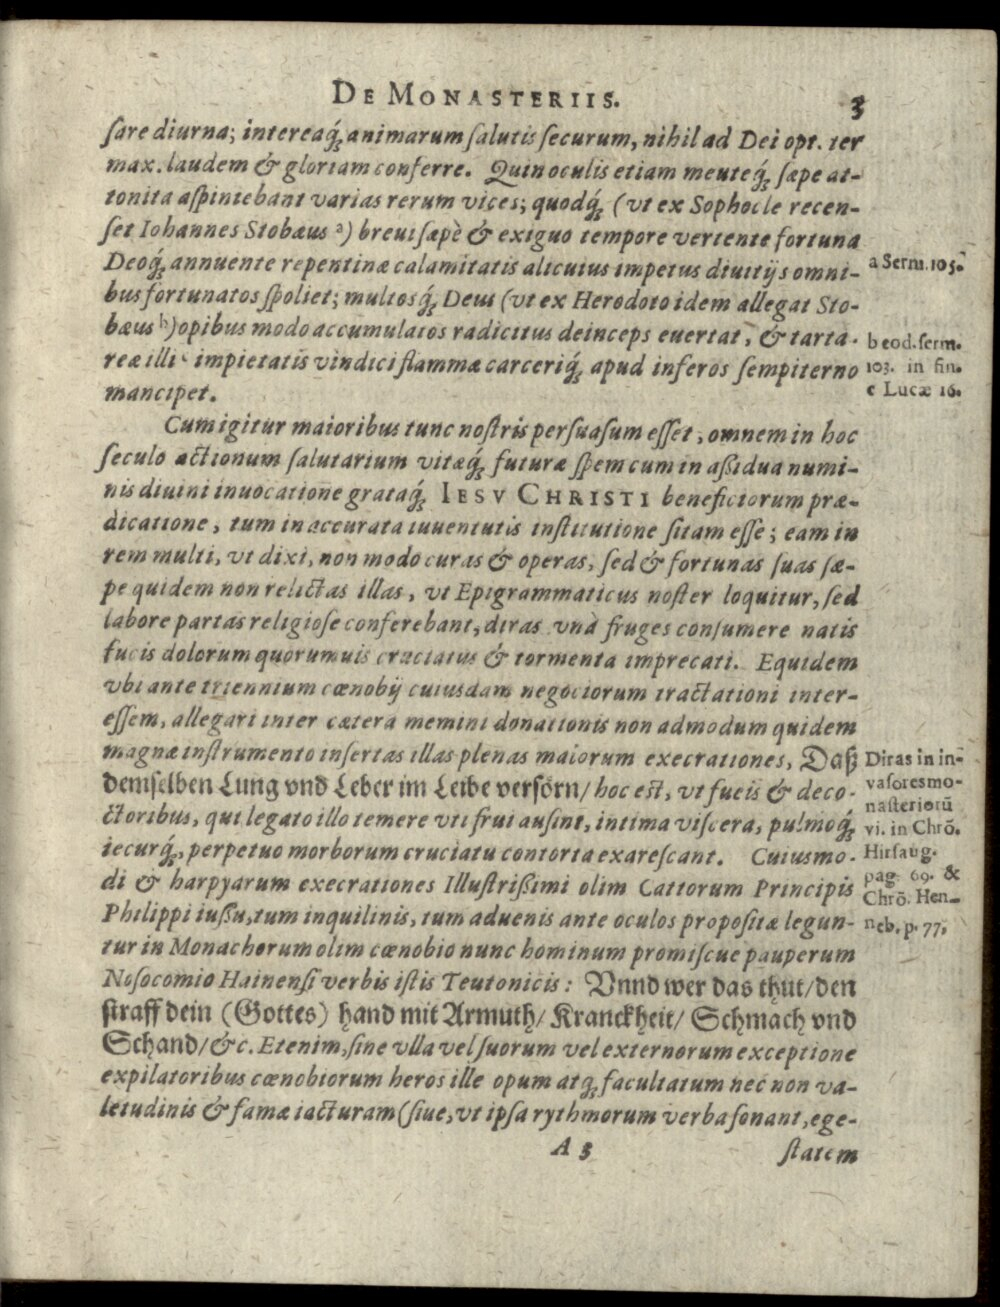 DE MONASTERIIS. 3
sare diurna; intereaq́ꝫ animarum salutis securum, nihil ad Dei opt. ter
max. laudem & gloriam conferre. Quin oculis etiam menteq́ꝫ sæpe at-
tonita aspiciebant varias rerum vices; quodq́ꝫ (vt ex Sophocle recen-
set Iohannes Stobæus a) breui sæpè & exiguo tempore vertente fortuna
Deoq́ꝫ annuente repentinæ calamitatis alicuius impetus diuitijs omni-
a Serm. 105.
bus fortunatos spoliet; multosq́ꝫ Deus (vt ex Herodoto idem allegat Sto-
bæus b) opibus modo accumulatos radicitus deinceps euertat, & tarta-
b eod. serm.
reæ illi c impietatis vindici flammæ carceriq́ꝫ apud inferos sempiterno
103. in fin.
mancipet.
c Lucæ 16.
Cum igitur maioribus tunc nostris persuasum esset, omnem in hoc
seculo actionum salutarium vitæq́ꝫ futuræ spem cum in aßidua numi-
nis diuini inuocatione grataq́ꝫ IESV CHRISTI beneficiorum præ-
dicatione, tum in accurata iuuentutis institutione sitam esse; eam in
rem multi, vt dixi, non modo curas & operas, sed & fortunas suas sæ-
pe quidem non relictas illas, vt Epigrammaticus noster loquitur, sed
labore partas religiose conferebant, diras vnà fruges consumere natis
fucis dolorum quorumuis cruciatus & tormenta imprecati. Equidem
vbi ante triennium cœnobij cuiusdam negociorum tractationi inter-
essem, allegari inter cætera memini donationis non admodum quidem
magnæ instrumento insertas illas plenas maiorum execrationes, Daß
Diras in in-
demselben Lung vnd Leber im Leibe versörn/ hoc est, vt fucis & deco-
vasores mo-
nasteriorū
ctoribus, qui legato illo temere vti frui ausint, intima viscera, pulmoq́ꝫ
vi. in Chrō.
iecurq́ꝫ, perpetuo morborum cruciatu contorta exarescant. Cuiusmo-
Hirsaug.
di & harpyarum execrationes Illustrißimi olim Cattorum Principis
pag. 69. &
Chrō. Hen-
Philippi iussu, tum inquilinis, tum aduenis ante oculos propositæ legun-
neb. p. 77.
tur in Monachorum olim cœnobio nunc hominum promiscue pauperum
Nosocomio Hainensi verbis istis Teutonicis: Vnnd wer das thut/ den
straff dein (Gottes) hand mit Armuth/ Kranckheit/ Schmach vnd
Schand/ &c. Etenim, sine vlla vel suorum vel externorum exceptione
expilatoribus cœnobiorum heros ille opum atq́ꝫ facultatum nec non va-
letudinis & famæ iacturam (siue, vt ipsa rythmorum verba sonant, ege-
A 3 statem